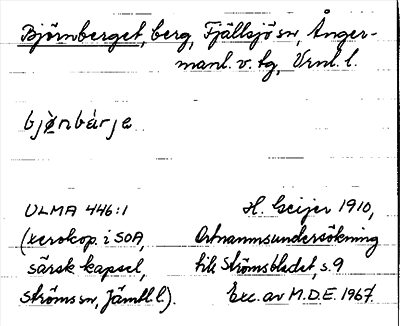 Björnberget, berg, Fjällsjö sn, Ånger-
manl. v. tg, Vrnl. l.
bjö̀nbárje
ULMA 446:1
(xerokop. i SOA,
särsk kapsel,
Ströms sn, Jämtl l).
H. Geijer 1910,
Ortnamnsundersökning
till Strömsbladet, s. 9
Exc. av M.D.E. 1967.